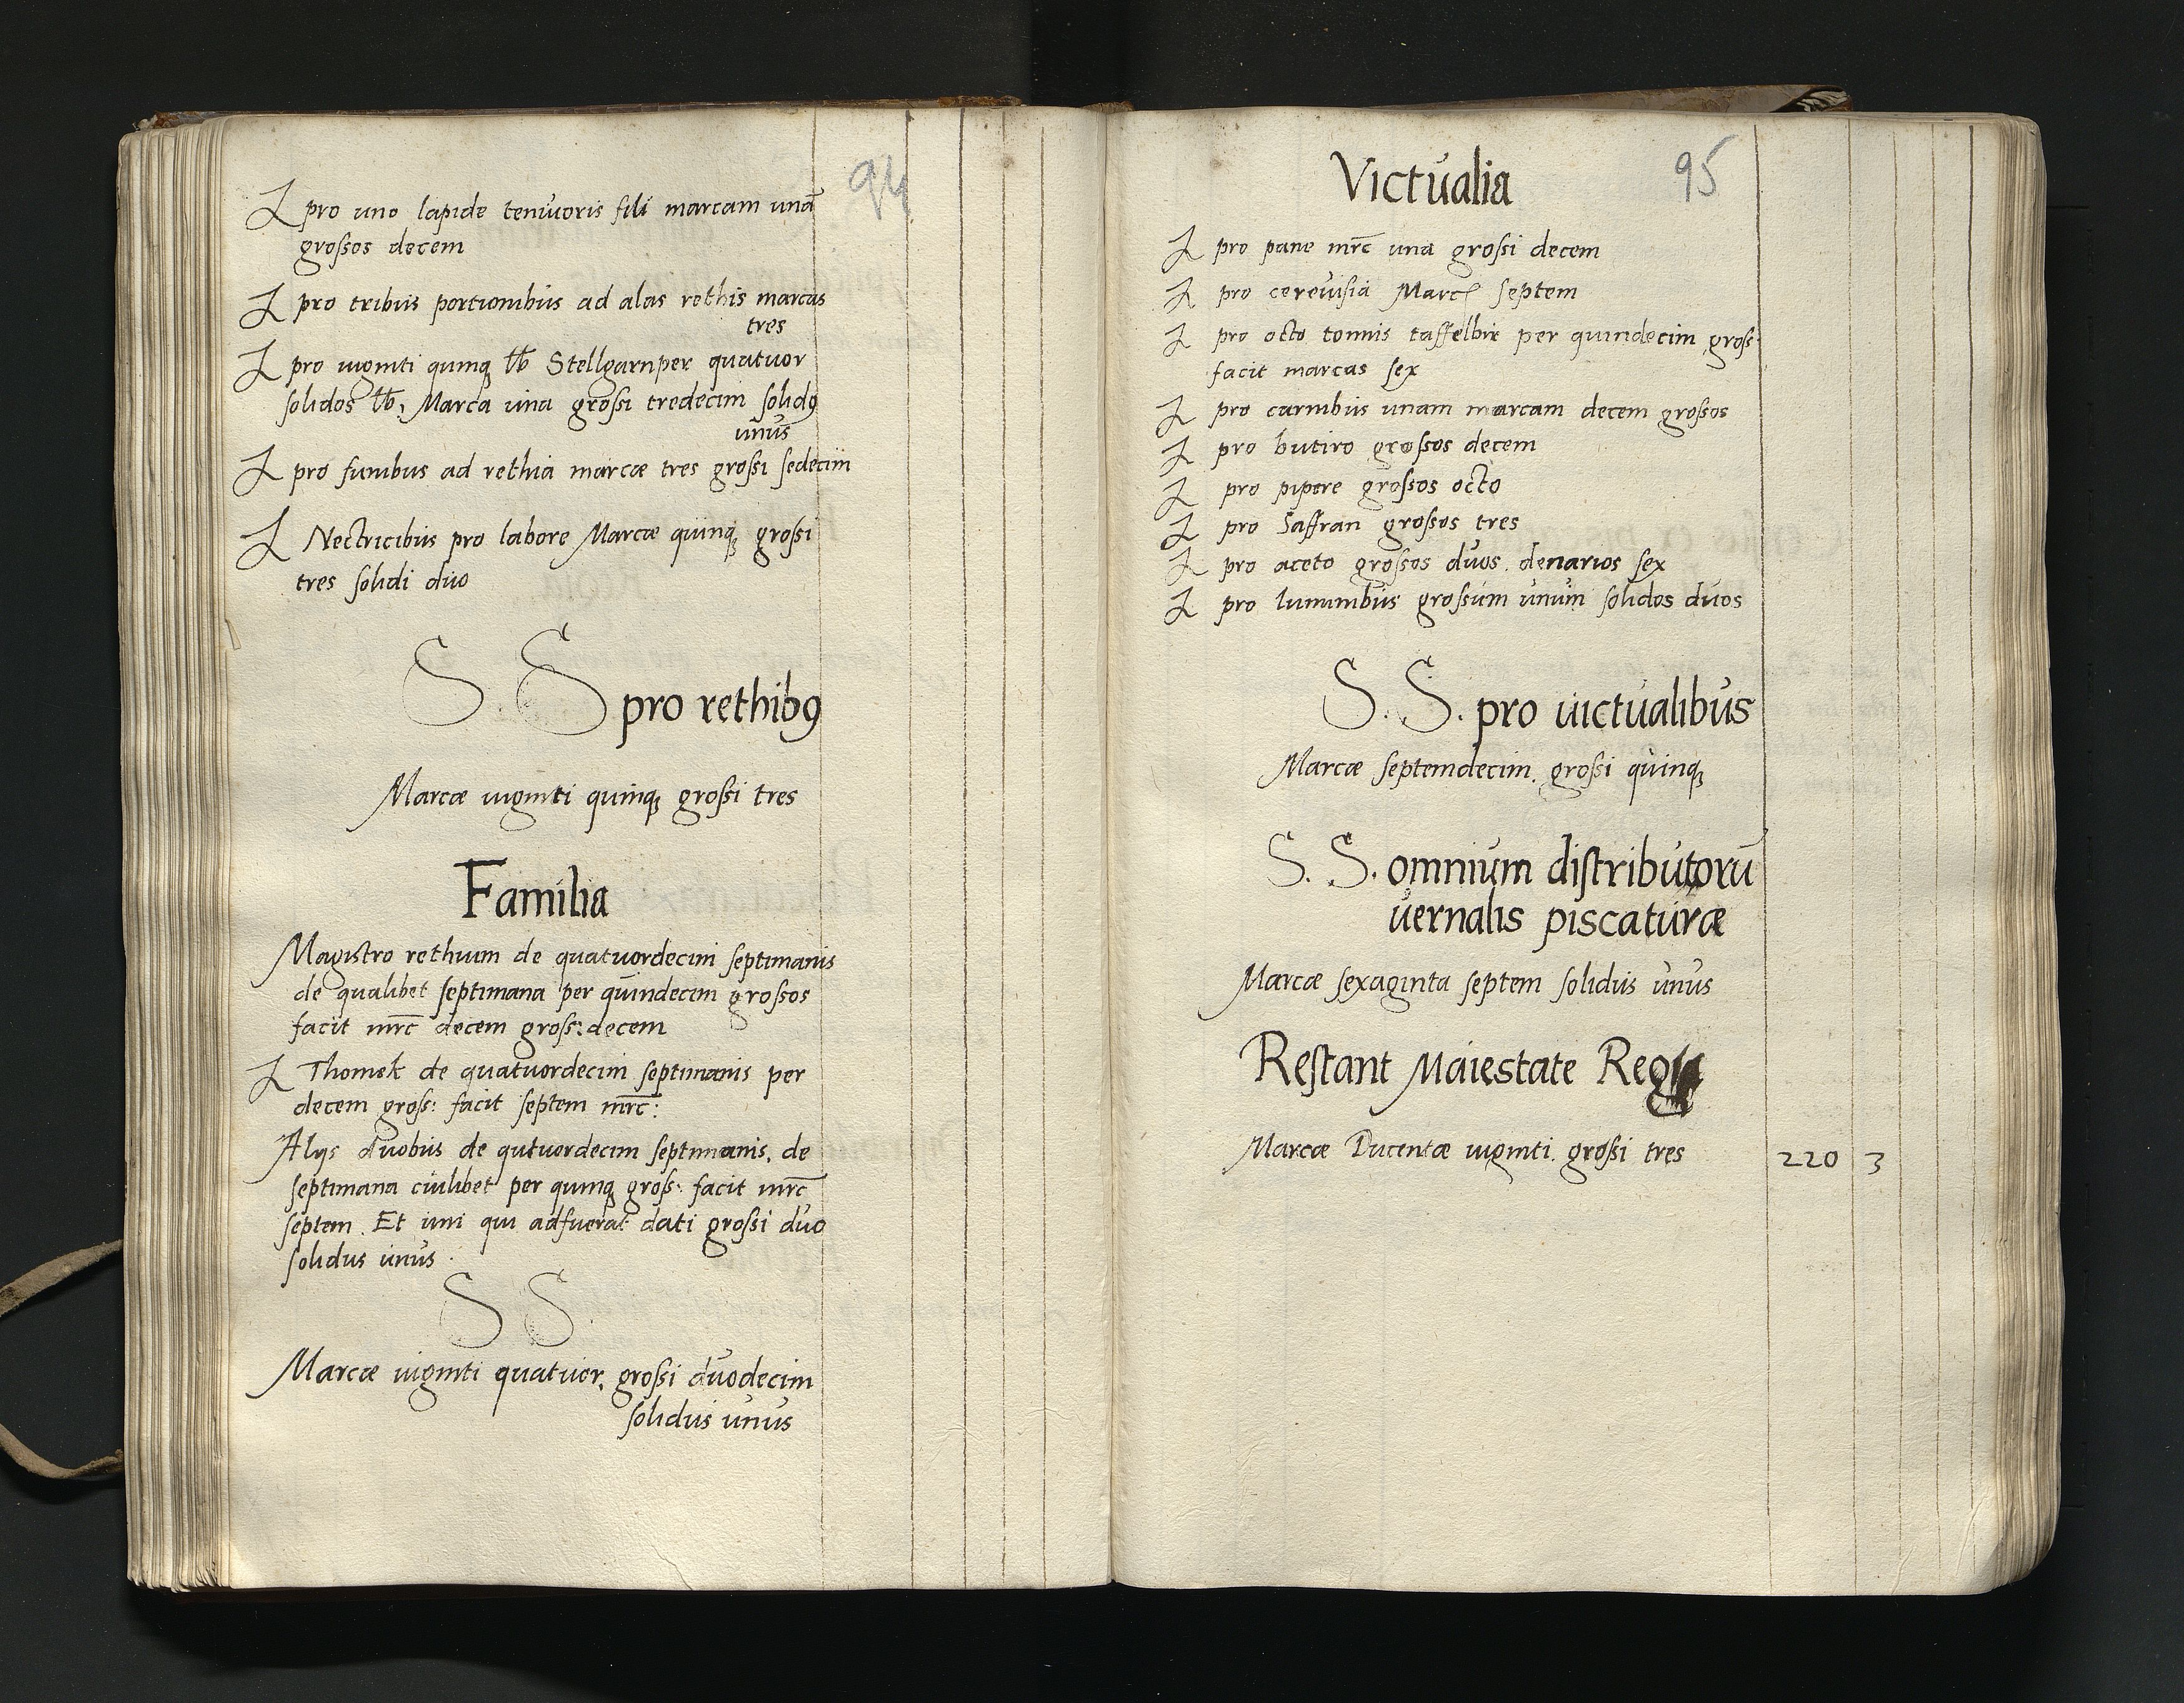 94
I pro uno lapide tenuoris fili marcam unā
grossos decem
I pro tribus portionibus ad alas rethis marcas
tres
I pro viginti quinq₃ lb Stellgarn per quatuor
solidos lb, Marca una grossi tredecim solidꝰ
unus
I pro funibus ad rethia marcæ tres grossi sedecim
I Nectricibus pro labore Marcæ quinq₃ grossi
tres solidi duo
S S pro rethibꝰ
Marcæ viginti quinq₃ grossi tres
Familia
Magistro rethium de quatuordecim septimanis
de qualibet septimana per quindecim grossos
facit mrc̄ decem gross: decem
I Thomek de quatuordecim septimanis per
decem gross: facit septem mrc̄:
Alijs duobus de qutuordecim septimanis, de
septimana cuilibet per quinq₃ gross: facit mrc̄
septem. Et uni qui adfuerat dati grossi duo
solidus unus.
S S
Marcæ viginti quatuor, grossi duodecim
solidus unus
95
Victualia
I pro pane mrc̄ una grossi decem
I pro cerevisia Marc septem
I pro octo tonnis taffelbir per quindecim gross:
facit marcas sex
I pro carnibus unam marcam decem grossos
I pro butiro grossos decem
I pro pipere grossos octo
I pro Saffran grossos tres
I pro aceto grossos duos. denarios sex
I pro luminibus grossum unum solidos duos
S. S. pro victualibus
Marcæ septemdecim. grossi quinq₃
S. S. omnium distributorū
vernalis piscaturæ
Marcæ sexaginta septem solidus unus
Restant Maiestate Regia
Marcæ Ducentæ viginti. grossi tres 220 3